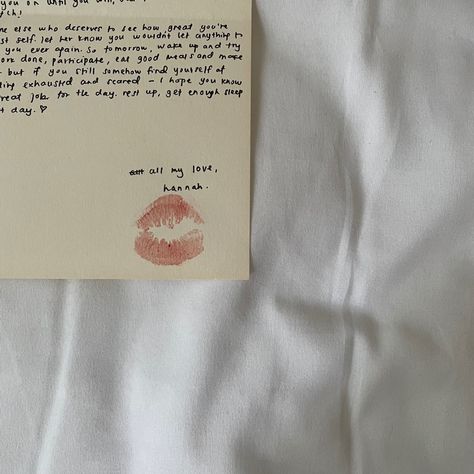 you on until you will, but i
tch!
me else who deserves to see how great you're
st self. let her know you wouldn't let anything to
you ever again. so tomorrow, wake up and try
ork done, participate, eat good meals and make
but if you still somehow find yourself at
ling exhausted and scared - i hope you know
reat job for the day. rest up, get enough sleep
t day. ♡
all my love,
hannah.